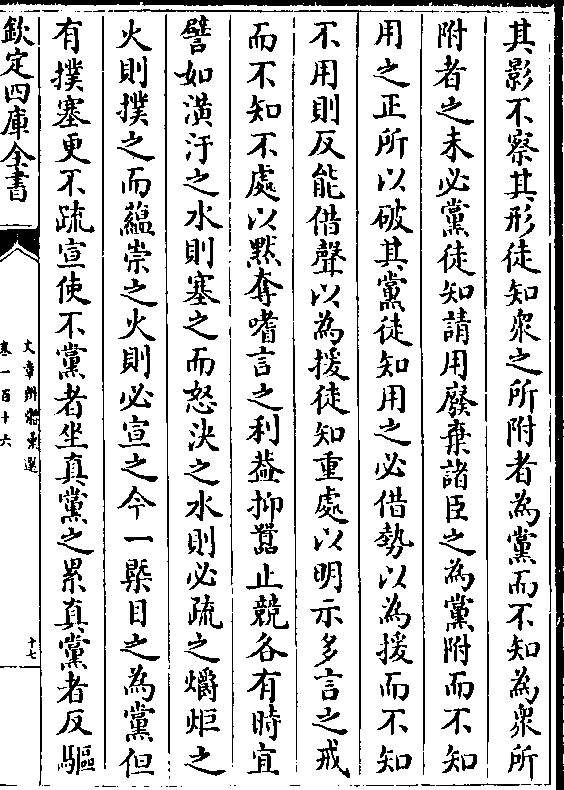 其影不察其形徒知衆之所附者為黨而不知為衆所
附者之未必黨徒知請用廢棄諸臣之為黨附而不知
用之正所以破其黨徒知用之必借勢以為援而不知
不用則反能借聲以為援徒知重處以明示多言之戒
而不知不處以黙奪嗜言之利葢抑囂止競各有時宜
譬如潢汙之水則塞之而怒決之水則必疏之爝炬之
火則撲之而蘊崇之火則必宣之今一槩目之為黨但
有撲塞更不疏宣使不黨者坐真黨之累真黨者反驅
欽定四庫全書
文章辨體彙選
卷一百十六
十七